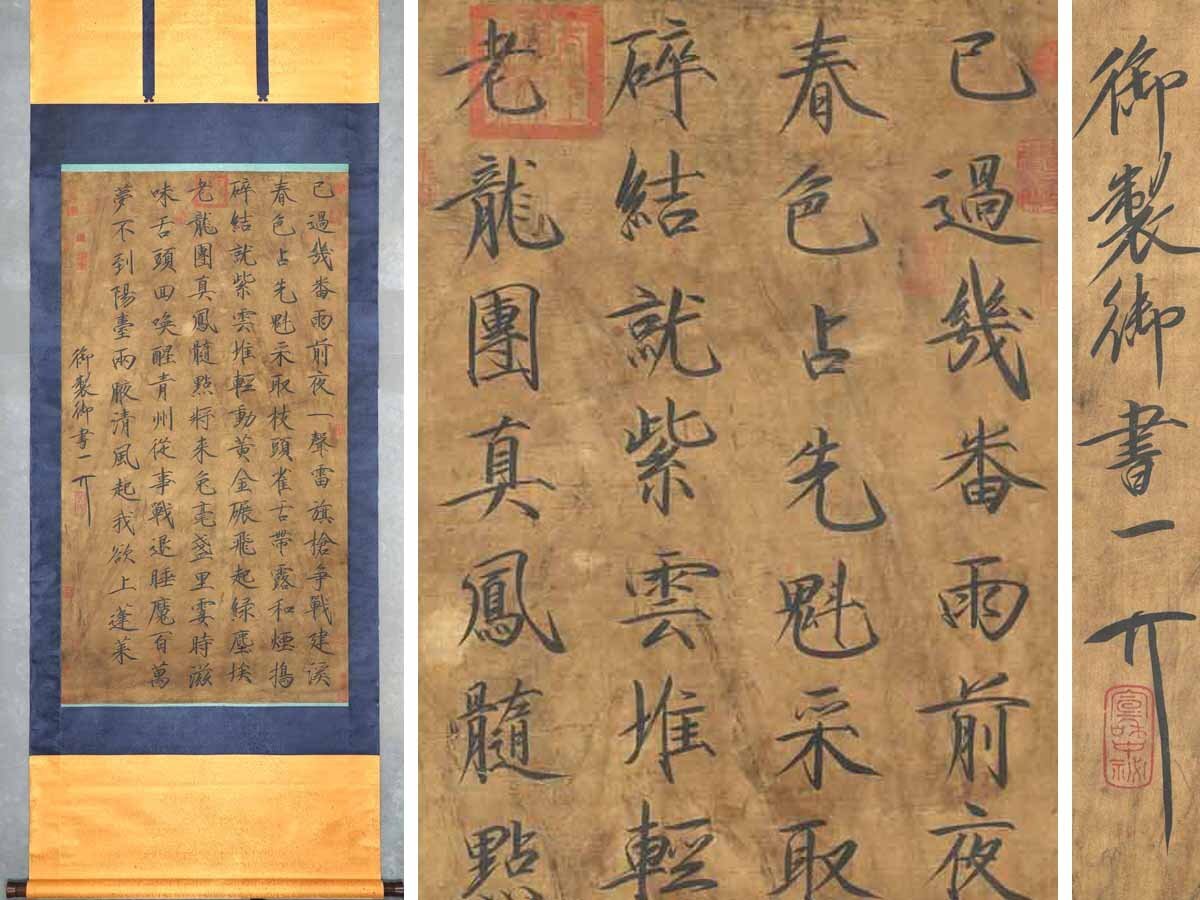 已過幾番雨前夜一聲雷旗槍爭戰建溪
春色占先魁采取枝頭雀舌帶露和煙搗
碎結就紫雲堆輕動黃金碾飛起綠塵埃
老龍團真鳳髓點將来兔毫盞里霎時滋
味舌頭回喚醒青州從事戰退睡魔百萬
夢不到陽臺兩腋清風起我欲上蓬萊
御製御書一
已過幾番雨前夜
春色占先魁采取
碎結就紫雲堆輕
老龍團真鳳髓點
御製御書一